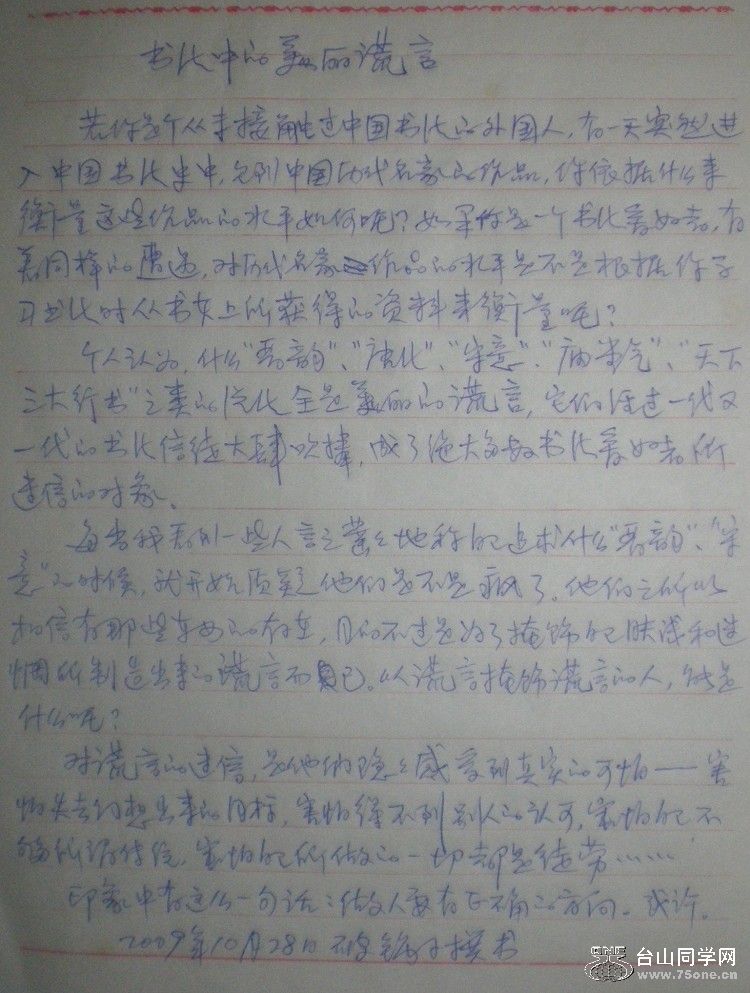 书法中的美丽谎言
若你是个从未接触过中国书法的外国人，有一天突然进
入中国书法史中，见到中国历代名家的作品，你依据什么来
衡量这些作品的水平如何呢？如果你是一个书法爱好者，有
着同样的遭遇，对历代名家作品的水平是不是根据你学
习书法时从书本上所获得的资料来衡量呢？
个人认为，什么“晋韵”、“唐法”、“宋意”、“庙堂气”、“天下
三大行书”之类的说法全是美丽的谎言，它们经过一代又
一代的书法信徒大肆吹捧，成了绝大多数书法爱好者所
迷信的对象。
每当我看到一些人言之凿凿地称自己追求什么“晋韵”、“宋
意”的时候，就开始质疑他们是不是疯了。他们之所以
相信有那些东西的存在，目的不过是为了掩饰自己肤浅和迷
惘所制造出来的谎言而已。以谎言掩饰谎言的人，能是
什么呢？
对谎言的迷信，是他们隐隐感受到真实的可怕——害
怕失去幻想出来的目标，害怕得不到别人的认可，害怕自己不
够所谓传统，害怕自己所做的一切都是徒劳……
印象中有这么一句话：做人要有正确的方向。或许。
2009年10月28日
台山同学网
www.75one.cn